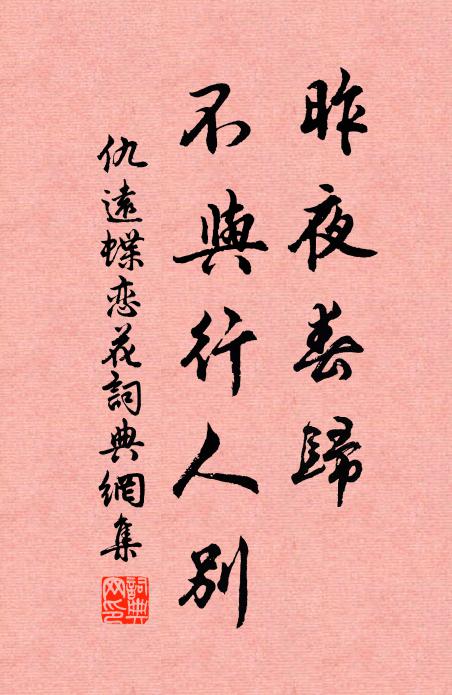 昨夜春歸
不與行人別
仇遠蝶恋花詞典網集
詞典網印